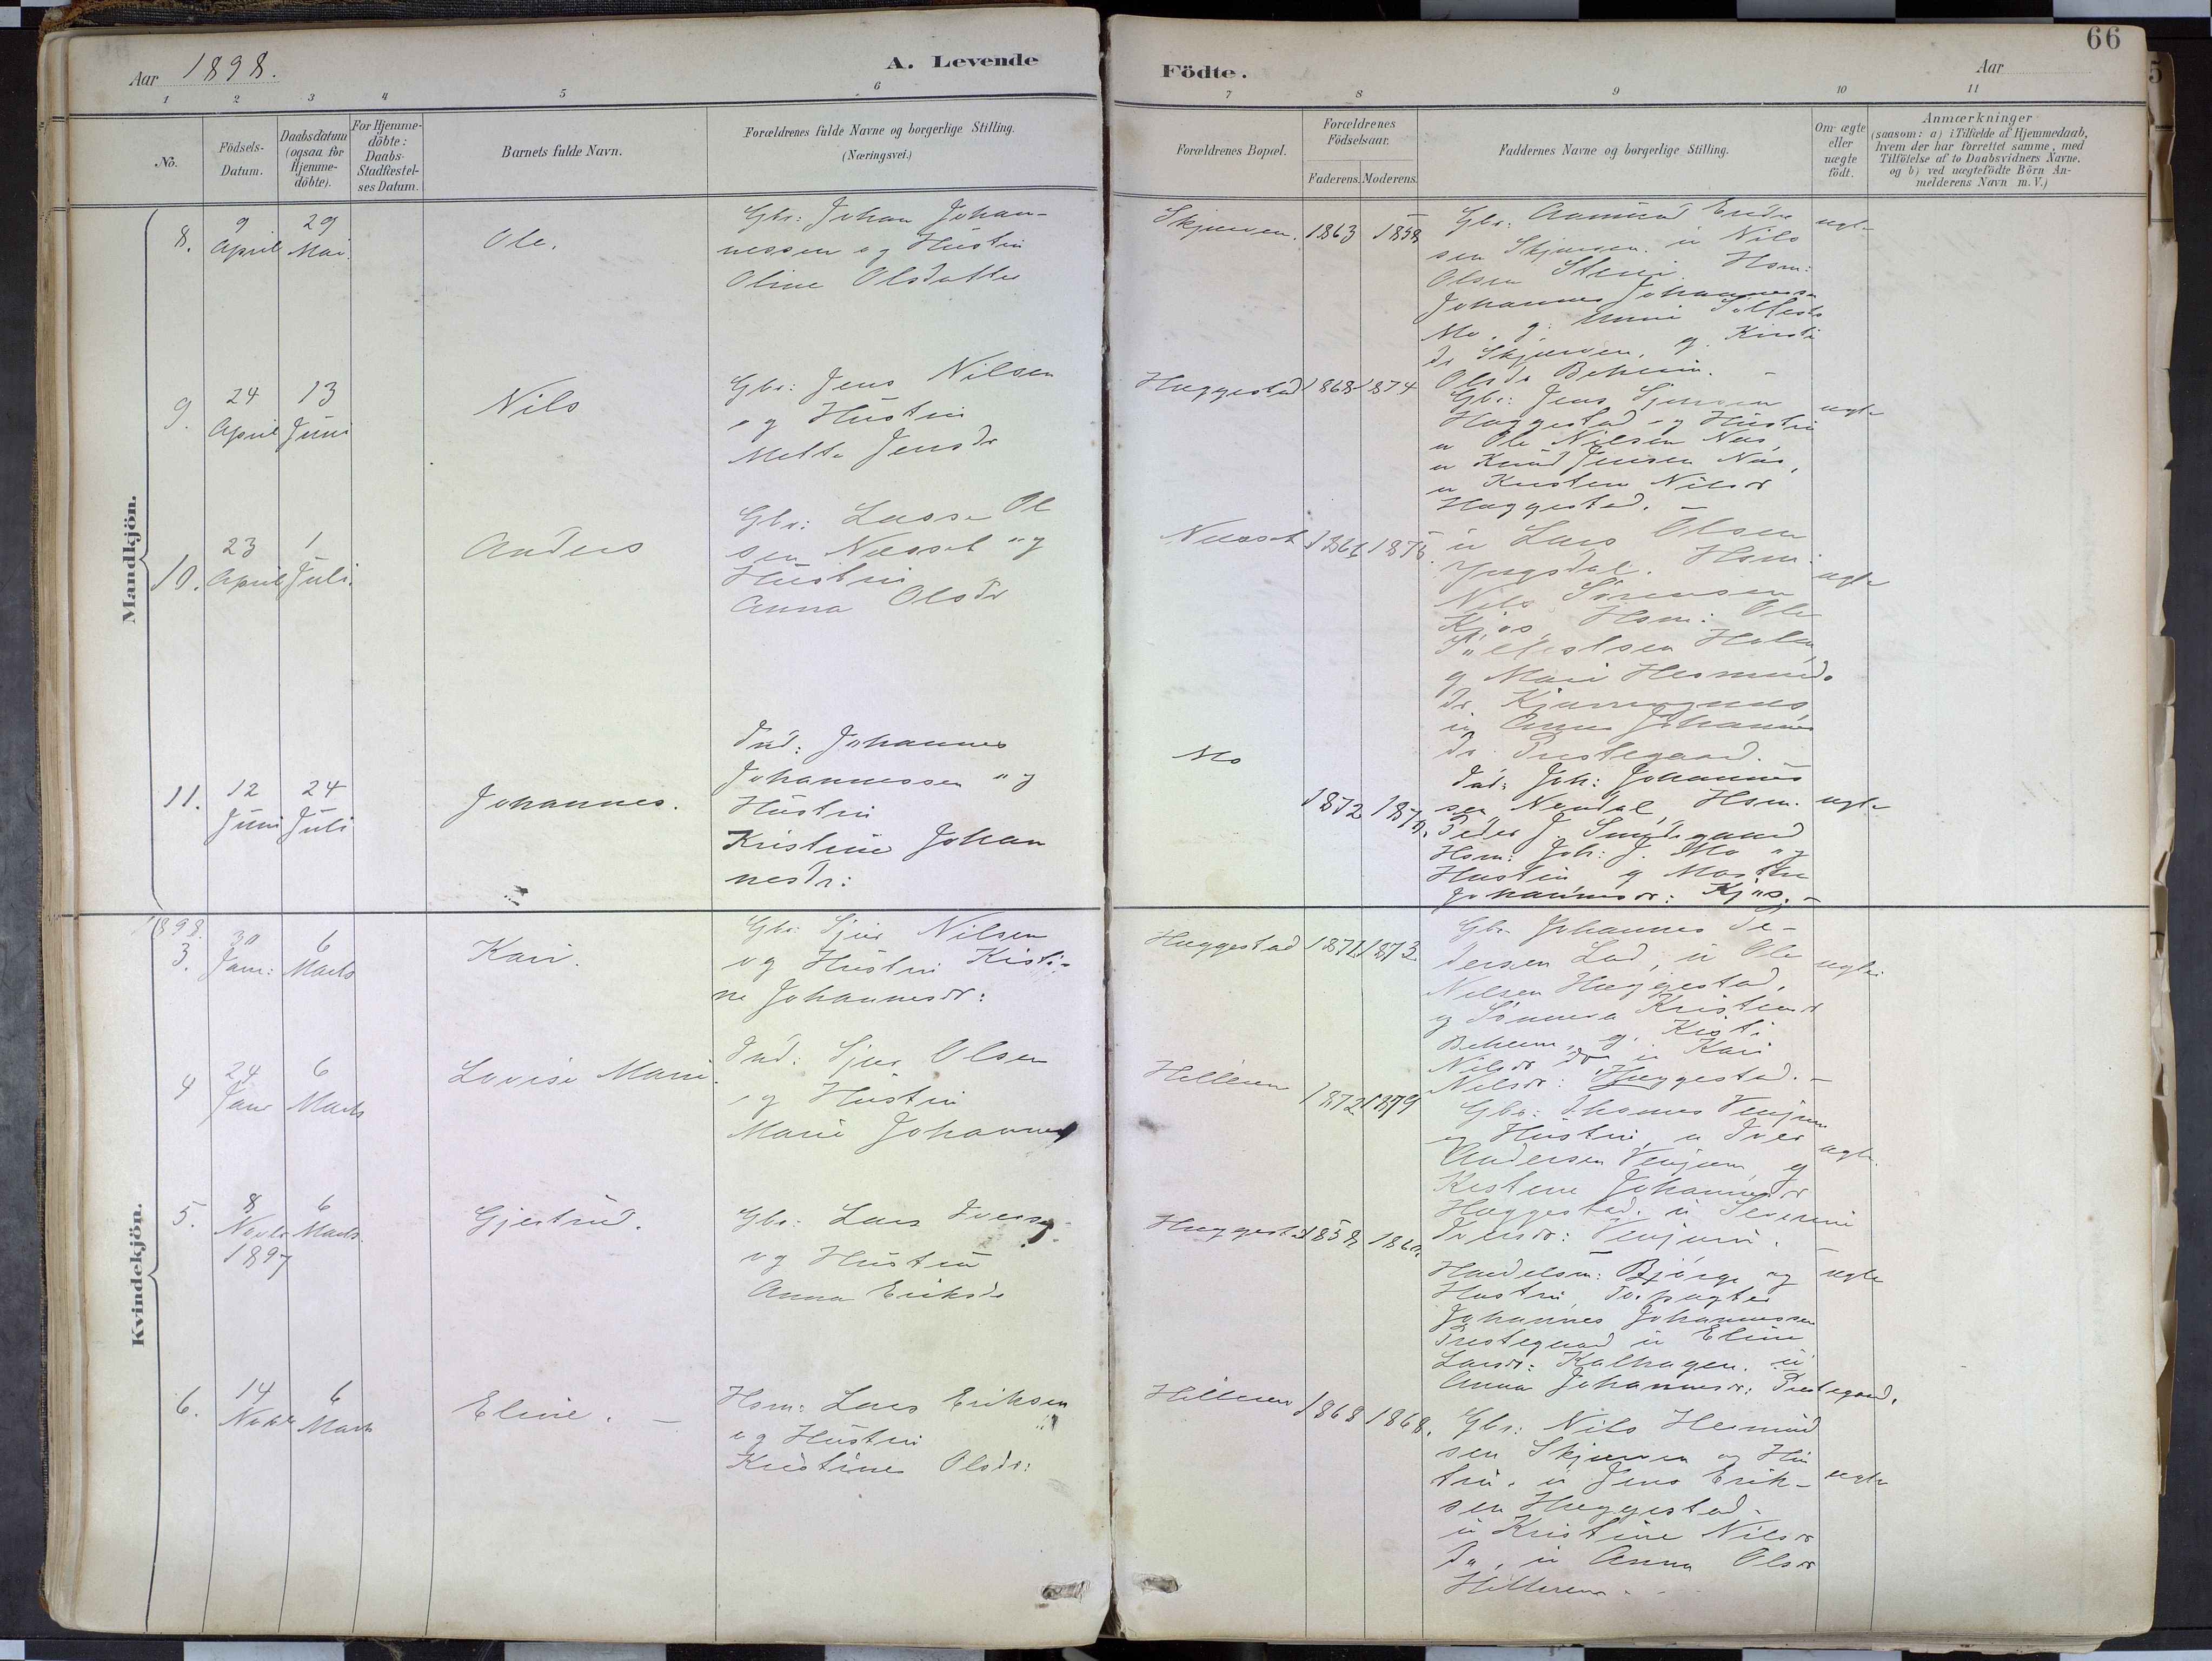 66
Aar 1898.
A. Levende
Födte.
Aar
1 2 3 4 5 6 7 8 9 10 11
No.
Födsels-
Datum.
Daabsdatum
(ogsaa for
Hjemme-
döbte).
For Hjemme-
döbte:
Daabs-
Stadfæstel-
ses Datum.
Barnets fulde Navn.
Forældrenes fulde Navne og borgerlige Stilling.
(Næringsvei.)
Forældrenes Bopæl.
Forældrenes
Födselsaar.
Faderens. Moderens.
Faddernes Navne og borgerlige Stilling.
Om ægte
eller
uægte
födt.
Anmærkninger
(saasom: a) i Tilfælde af Hjemmedaab,
hvem der har forrettet samme, med
Tilföielse af to Daabsvidners Navne,
og b) ved uægtefödte Börn An-
melderens Navn m. V.)
Mandkjön.
8.
9 April
29 Mai.
Ole.
Gbr: Johan Johan-
nessen og Hustru
Oline Olsdatter
Skjerven.
1863
1858
Gbr.
sen Skjerven. u Nils
Olsen Hsm:
Johannes Johannessen
Mo, g:
dr Skjerven, g. Kirsti
Olsdr Beheim. -
ægte
9.
24 April
13 Juni
Nils
Gbr: Jens Nilsen
og Hustru
Metta Jensdr
Hæggestad
1868
1874
Gbr: Jens
Hæggestad og Hustru
u Ole Nilsen Næs,
u Knud Jensen Næs,
u Kristen Nilsdr
Hæggestad. -
ægte
10.
23 April
1 Juli.
Anders
Gbr: Lasse Ol
sen Næsset og
Hustru
Anna Olsdr
Næsset
1875.
u Lars Olsen
Hsm:
Nils Sörensen
Kjos, Hsm: Ole
Holm,
g Mari
dr.
u Anna Johannes
dr. Prestegaard. -
ægte
11.
12 Juni
24 Juli
Johannes.
Ind: Johannes
Johannessen og
Hustru
Kristine Johan
nesdr:
Mo
1872
Ind: Joh: Johannes
sen Nondal, Hsm.
Peder J.
Hsm: Joh: J. Mo og
Hustru g
Johannesdr: Kjos. -
ægte
Kvindekjön.
1898.
3.
30 Janr:
6 Marts
Kari.
Gbr: Sjur Nilsen
og Hustru Kisti-
ne Johannesdr:
Hæggestad
1871
1873
Gbr. Johannes Pe-
dersen Lad, u Ole
Nilsen Hæggestad,
g Sönneva
Beheim, g. Kisti
Nilsdr do u Kari
Nilsdr: Hæggestad. -
ægte
4
24 Janr
6 Marts
Lovise Marie.
Ind: Sjur Olsen
og Hustru
Marie Johannes
Hilleren
1872
1879
Gbr: Thomas Venjum
og Hustru, u Iver
Andersen Venjum, g
Kistine Johannesdr
Hæggestad. u Severine
Iversdr: Venjum. -
ægte.
5.
8 Novbr
1897
6 Marts.
Gjertrud.
Gbr: Lars Iversen
og Hustru
Anna Eriksdr
Hæggestad
1858
Handelsm: Bjørge og
Hustru,
Johannes Johannessen
Prestegaard u Eline
Larsdr: Kalhagen. u
Anna Johannesdr: Prestegaard.
ægte
6.
14 Novbr
6 Marts
Eline. -
Hsm: Lars Eriksen
og Hustru
Kristine Olsdr:
Hilleren
1868
1868.
Gbr: Nils Hermund
sen Skjerven og Hus
tru. u Jens Erik-
sen Hæggestad -
u Kristine Nilsdr
do, u Anna Olsdr
Hilleren -
ægte